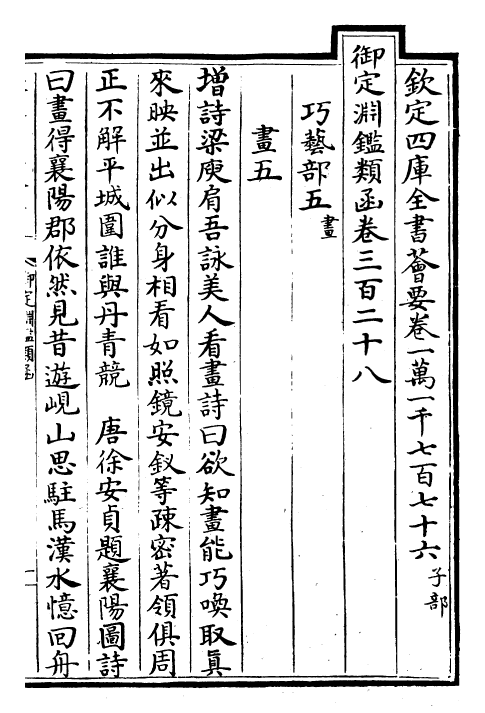 欽定四庫全書薈要卷一萬一千七百七十六 子部
御定淵鑑類函卷三百二十八
巧藝部五 畫
畫五
增詩梁庾肩吾詠美人看畫詩曰欲知畫能巧喚取真
來映並出似分身相看如照鏡安釵等疎密著領俱周
正不解平城圍誰與丹青競 唐徐安貞題襄陽圖詩
曰畫得襄陽郡依然見昔遊峴山思駐馬漢水憶回舟
御定淵鑑類函